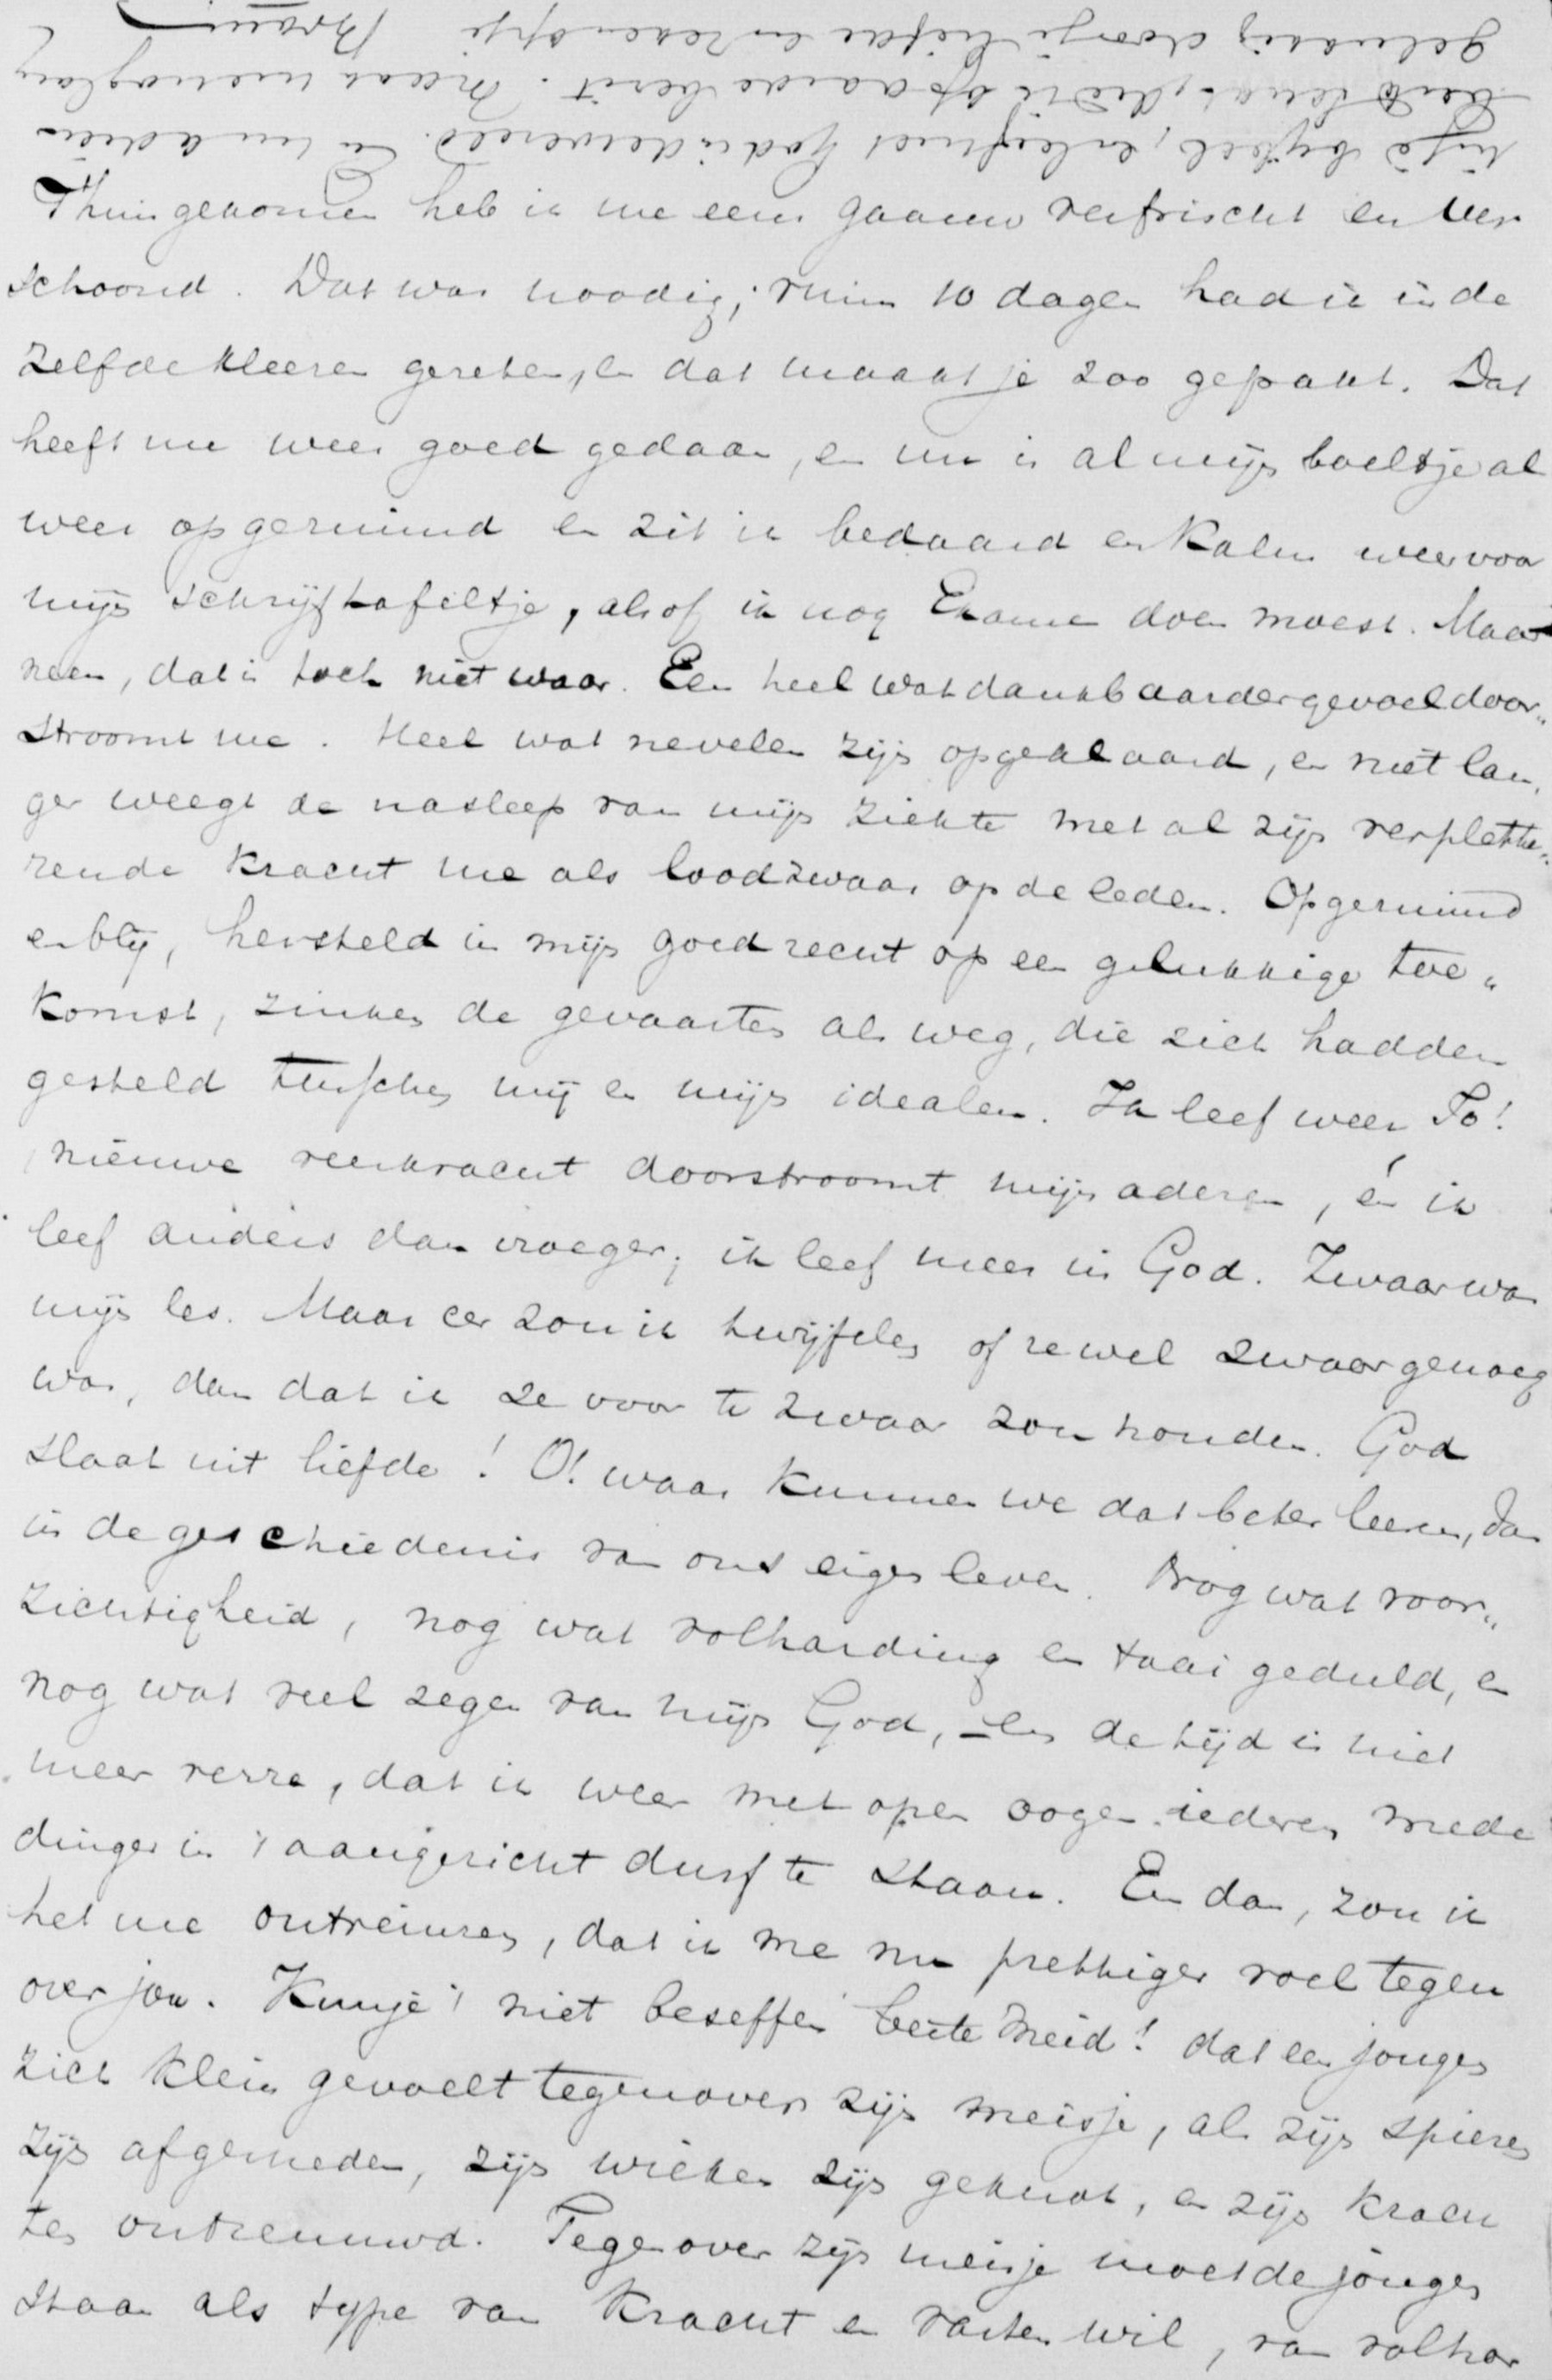 Thuis gekomen heb ik me eens gaauw verfrischt en ver
schoond. Dat was noodig; ruim 10 dagen had ik in de
zelfde kleeren gezeten, en dat maakt je zoo gepakt. Dat
heeft me weer goed gedaan, en nu is al mijn boeltje al
weer opgeruimd en zit ik bedaard en kalm weer voor
mijn schrijftafeltje, alsof ik nog Examen doen moest. Maar
neen, dat is toch niet waar. Een heel wat dankbaarder gevoel door„
stroomt me. Heel wat nevelen zijn opgeklaard, en niet lan„
ger weegt de nasleep van mijn ziekte met al zijn verplette„
rende kracht me als loodzwaar op de leden. Opgeruimd
en blij, hersteld in mijn goed recht op een gelukkige toe„
komst, zinken de gevaartes als weg, die zich hadden
gesteld tusschen mij en mijn idealen. Ik leef weer To!
nieuwe veerkracht doorstroomt mijn aderen, én ik
leef anders dan vroeger; ik leef meer in God. Zwaar was
mijn les. Maar eer zou ik twijfelen of ze wel zwaar genoeg
was, dan dat ik ze voor te zwaar zou houden. God
slaat uit liefde! O! waar kunnen we dat beter leeren, dan
in de geschiedenis van ons eigen leven. Nog wat voor„
zichtigheid, nog wat volharding en taai geduld, en
nog wat veel zegen van mijn God, – en de tijd is niet
meer verre, dat ik weer met open oogen iederen mede
dinger in 't aangezicht durf te staan. En dan, zou ik
het me ontveinzen, dat ik me nu prettiger voel tegen
over jou. Kun je 't niet beseffen beste Meid! dat een jongen
zich klein gevoelt tegenover zijn meisje, als zijn spieren
zijn afgesneden, zijn wieken zijn geknot, en zijn krach
ten ontzenuwd. Tegenover zijn meisje moet de jongen
staan als type van kracht en vasten wil, van volhar